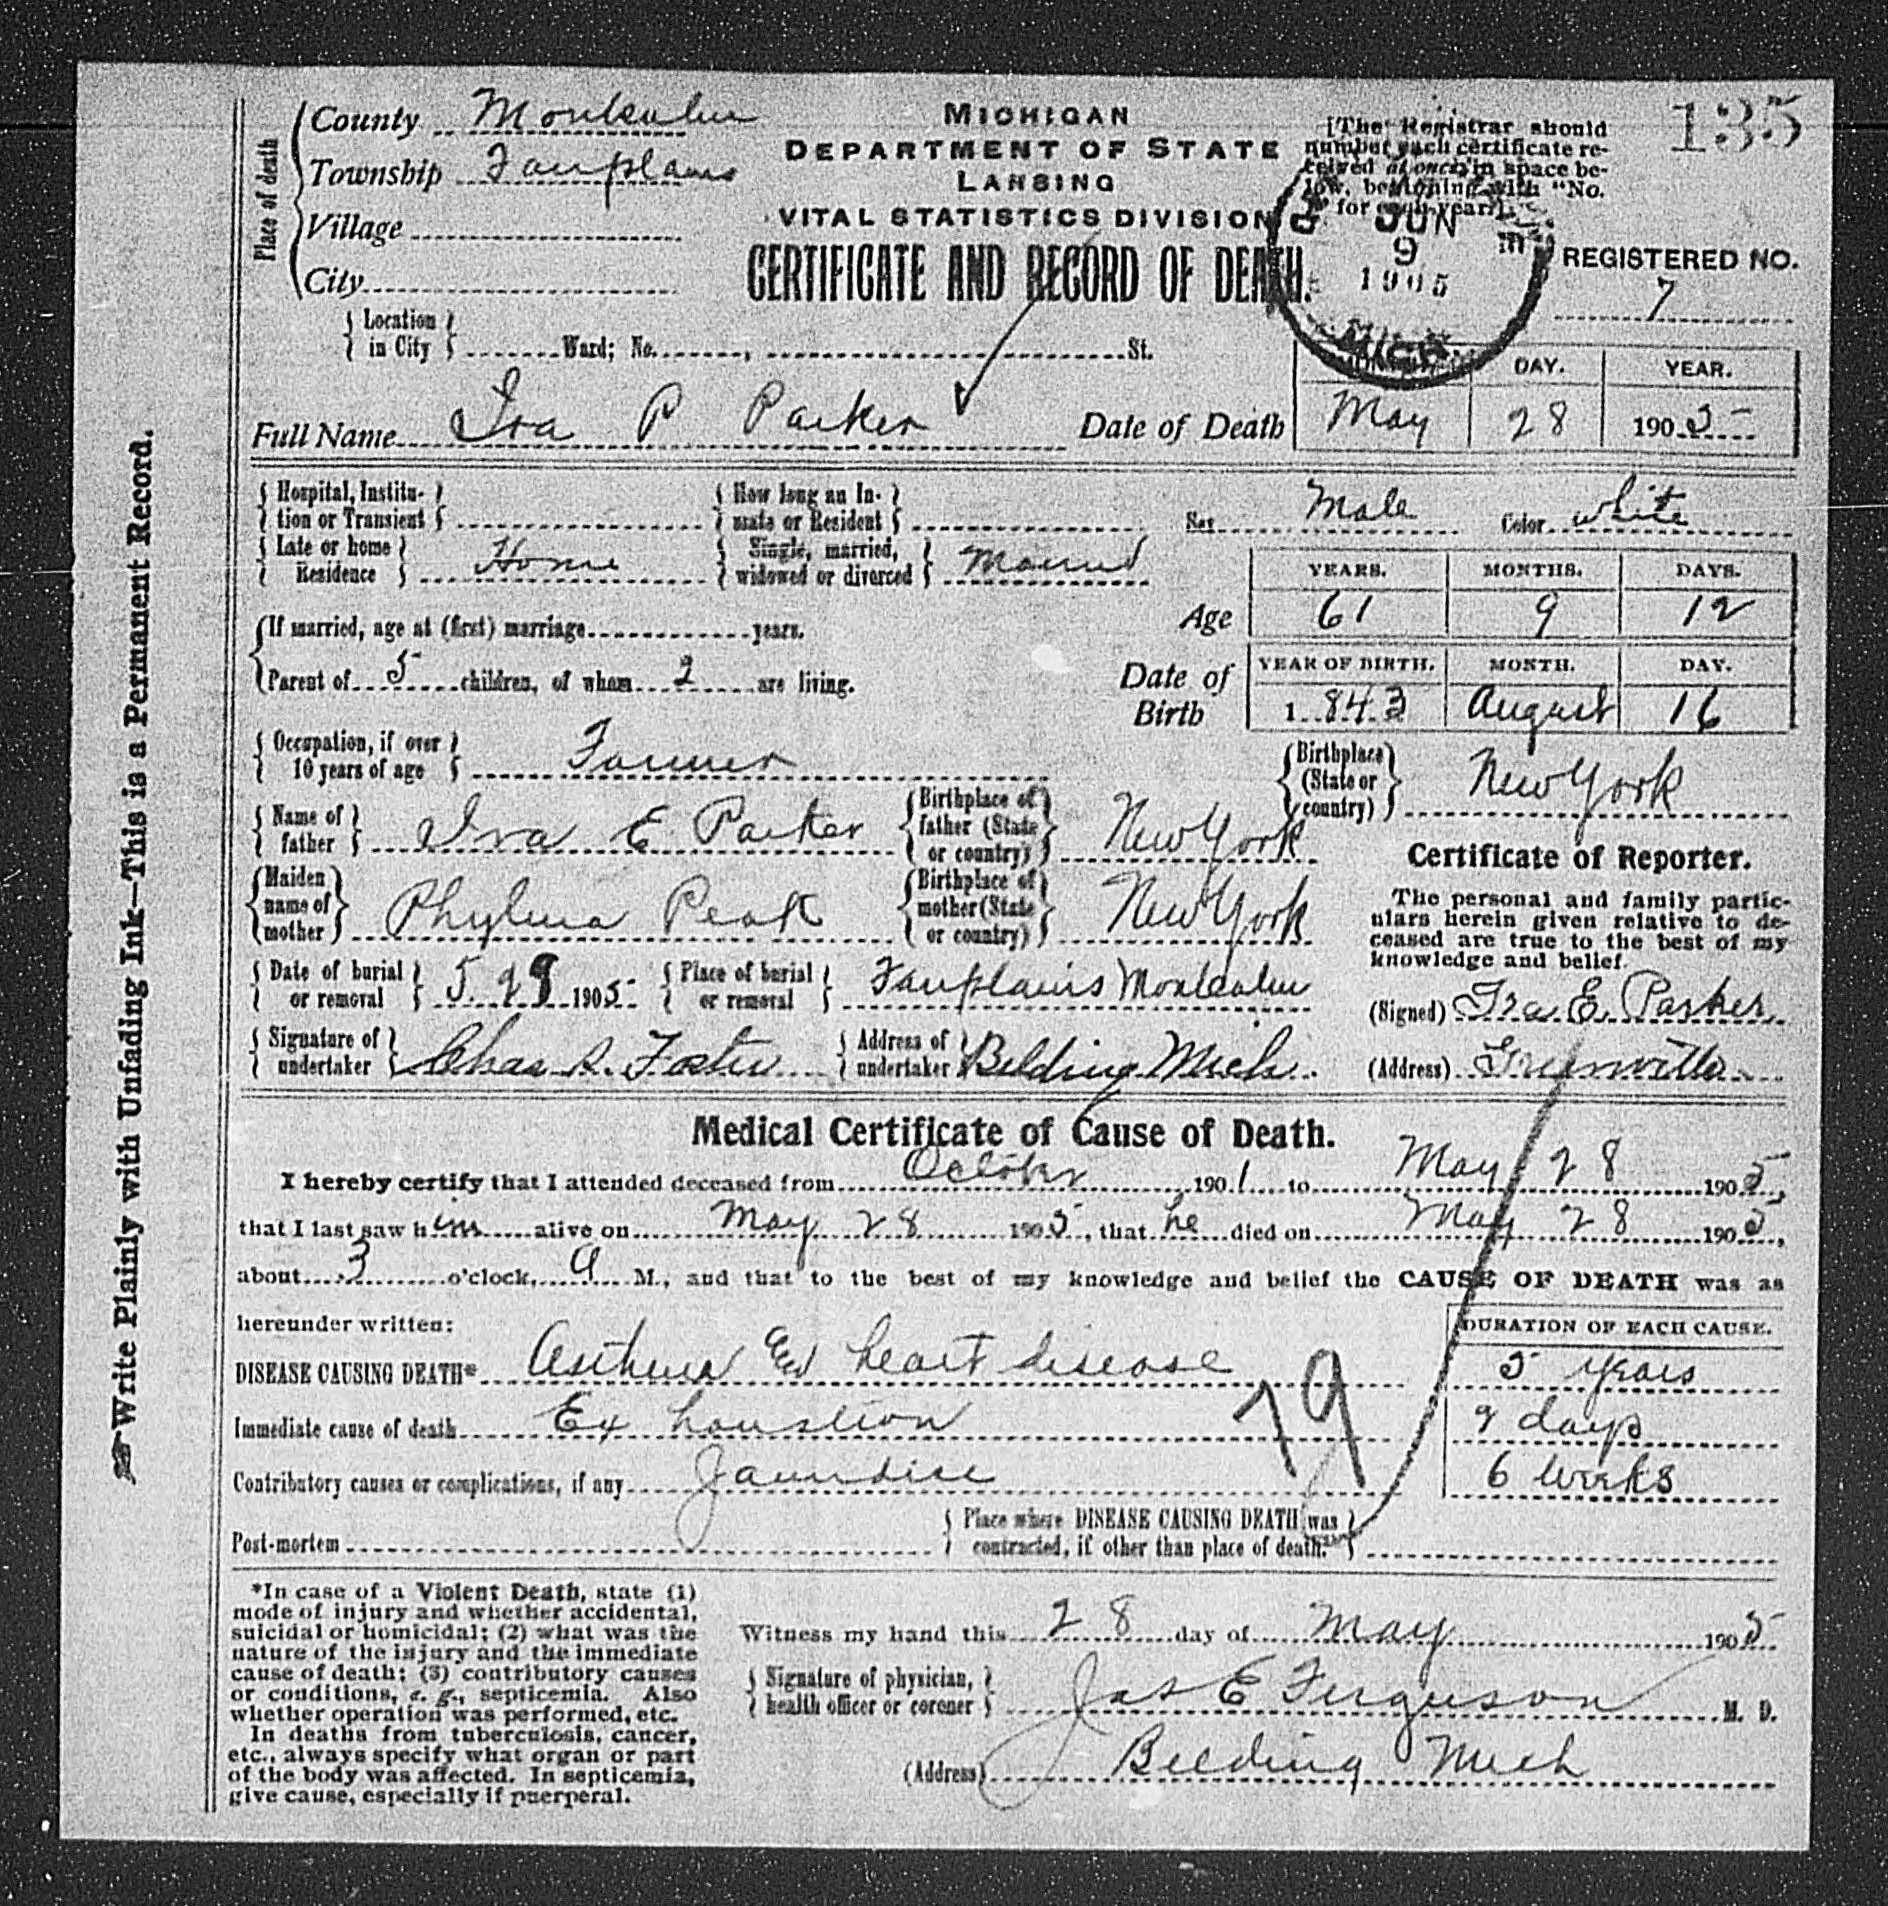 135
Place of death
County Montcalm
Township Fairplains
Village
City
MICHIGAN
DEPARTMENT OF STATE
LANSING
VITAL STATISTICS DIVISION
CERTIFICATE AND RECORD OF DEATH.
[The Registrar should
number each certificate re-
ceived at once, in space be-
low, beginning with "No.
1" for each year.]
JUN
9
1905
MICH.
REGISTERED NO.
7
Location in City Ward; No. , St.
Full Name Ira P Parker
Date of Death
DAY. YEAR.
May 28 1905
Hospital, Institu-tion or Transient How long an In-mate or Resident Sex Male Color white
Late or home Residence Home Single, married, widowed or divorced Married
Age
YEARS. MONTHS. DAYS.
61 9 12
If married, age at (first) marriage years.
Parent of 5 children, of whom 2 are living.
Date of Birth
YEAR OF BIRTH. MONTH. DAY.
1843 August 16
Occupation, if over 10 years of age Farmer
Birthplace (State or country) New York
Name of father Ira E Parker Birthplace of father (State or country) New York
Maiden name of mother Phylura Peak Birthplace of mother (State or country) New York
Date of burial or removal 5.29 1905 Place of burial or removal Fairplains Montcalm
Signature of undertaker Chas S. Foster Address of undertaker Belding Mich
Certificate of Reporter.
The personal and family partic-
ulars herein given relative to de-
ceased are true to the best of my
knowledge and belief.
(Signed) Ira E. Parker
(Address) Greenville
Medical Certificate of Cause of Death.
I hereby certify that I attended deceased from October 1901 to May 28 1905,
that I last saw him alive on May 28 1905, that he died on May 28 1905,
about 3 o'clock, a M., and that to the best of my knowledge and belief the CAUSE OF DEATH was as
hereunder written:
DURATION OF EACH CAUSE.
DISEASE CAUSING DEATH* Asthma and heart disease 5 years
Immediate cause of death Exhaustion 9 days
79
Contributory causes or complications, if any Jaundice 6 weeks
Post-mortem Place where DISEASE CAUSING DEATH was contracted, if other than place of death.
*In case of a Violent Death, state (1)
mode of injury and whether accidental,
suicidal or homicidal; (2) what was the
nature of the injury and the immediate
cause of death; (3) contributory causes
or conditions, e. g., septicemia. Also
whether operation was performed, etc.
In deaths from tuberculosis, cancer,
etc., always specify what organ or part
of the body was affected. In septicemia,
give cause, especially if puerperal.
Witness my hand this 28 day of May 1905
Signature of physician, health officer or coroner Jas E Ferguson M. D.
(Address) Belding Mich
Write Plainly with Unfading Ink—This is a Permanent Record.